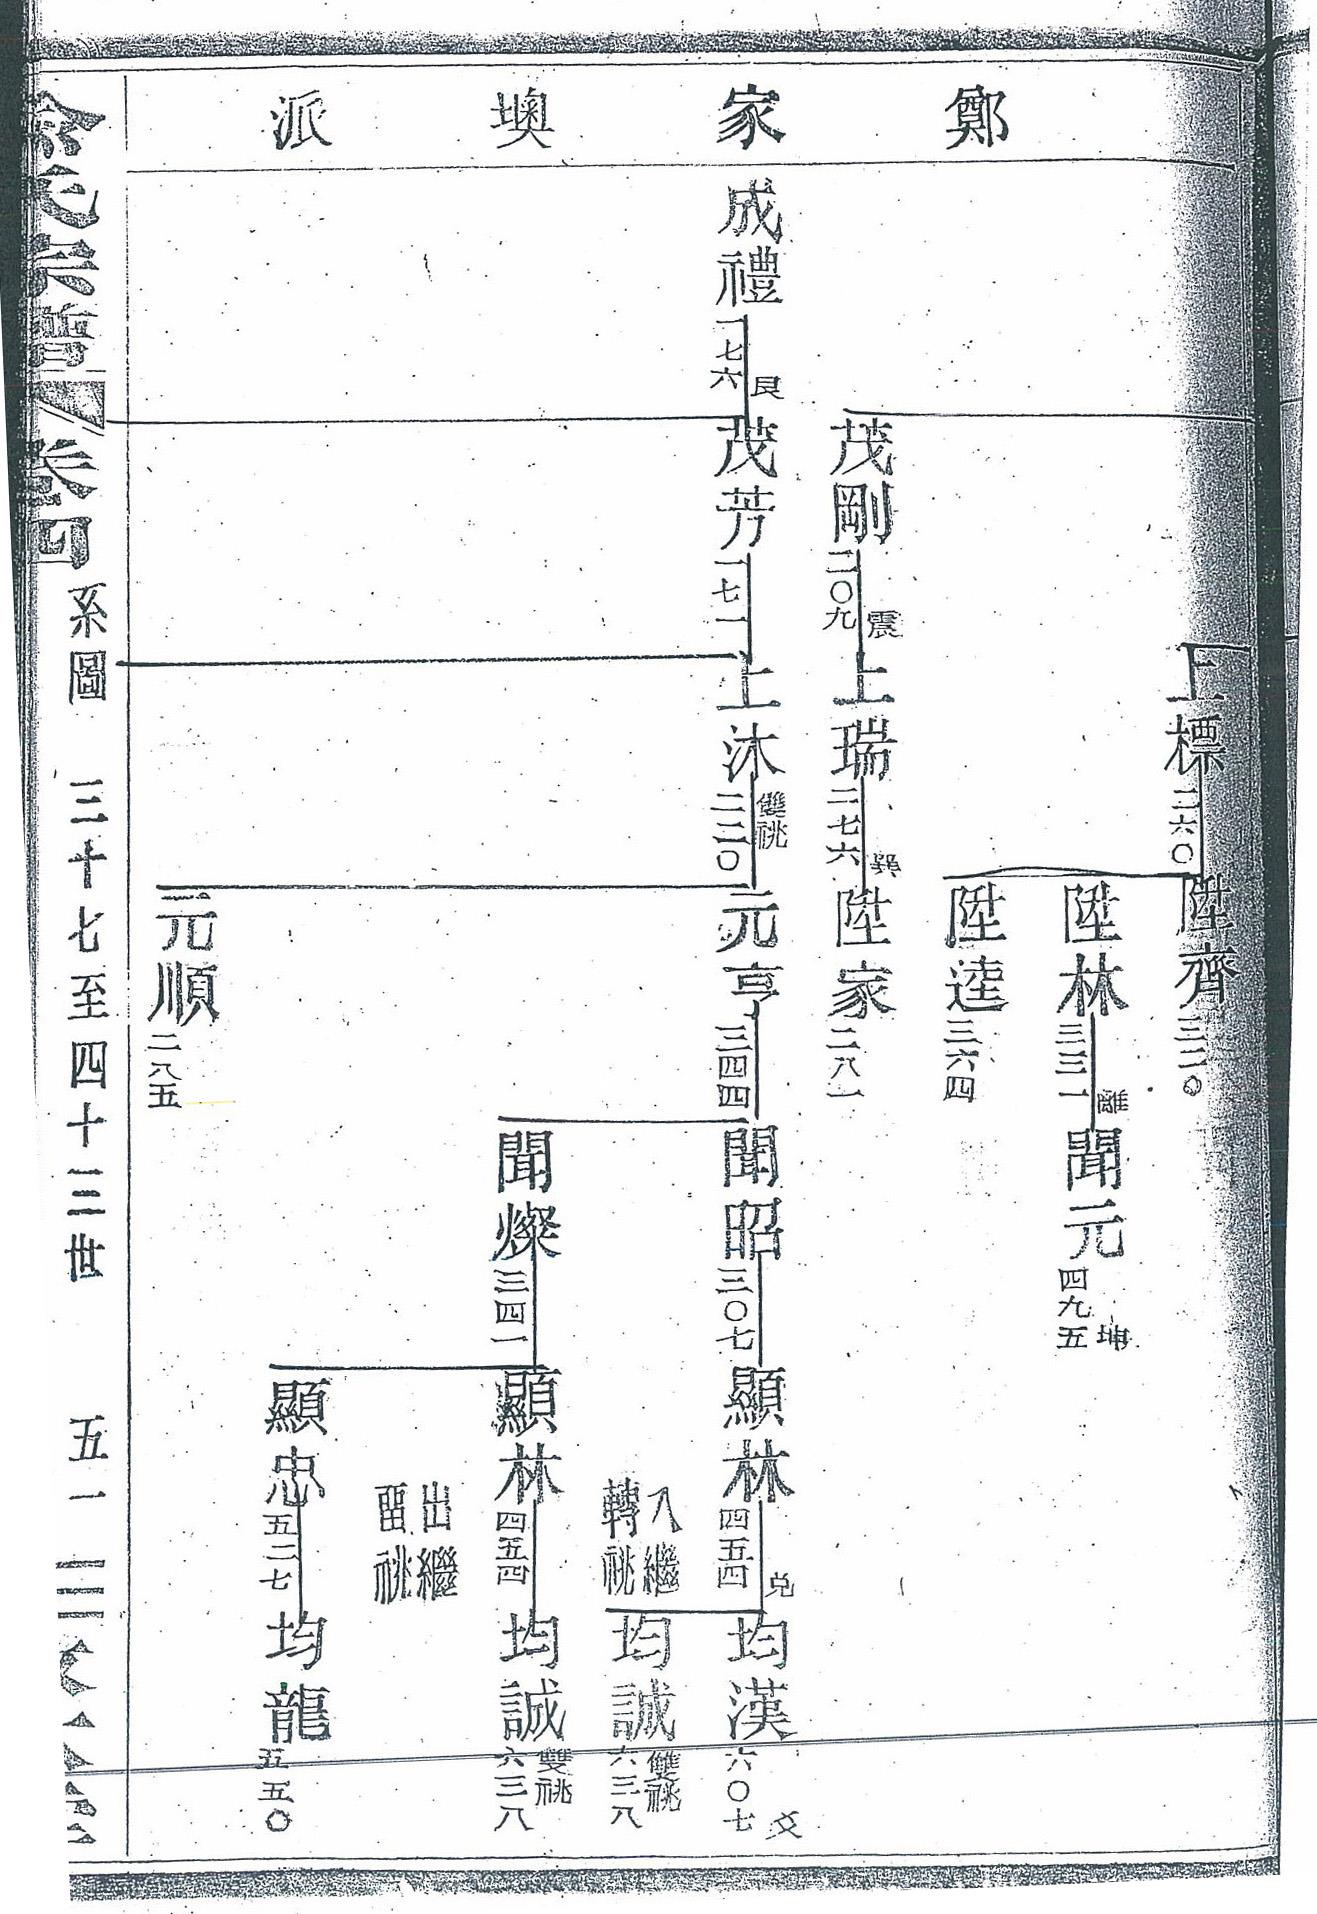 鄭家墺派
上標
二六〇
陞齊
三二〇
陞林
三三一
離
聞元
四九五
坤
陞逵
三六四
茂剛
二〇九
震
上瑞
二七六
巽
陞家
二八一
成禮
一七六
艮
茂芳
一七一
上沐
二二〇
雙祧
元亨
三四四
聞昭
三〇七
顯林
四五四
兌
入繼
轉祧
均漢
六〇七
爻
均誠
六三八
雙祧
聞燦
三四一
顯林
四五四
出繼
留祧
均誠
六三八
雙祧
顯忠
五二七
均龍
五五〇
元順
二八五
俞氏宗譜
卷四
系圖
三十七至四十三世
五一